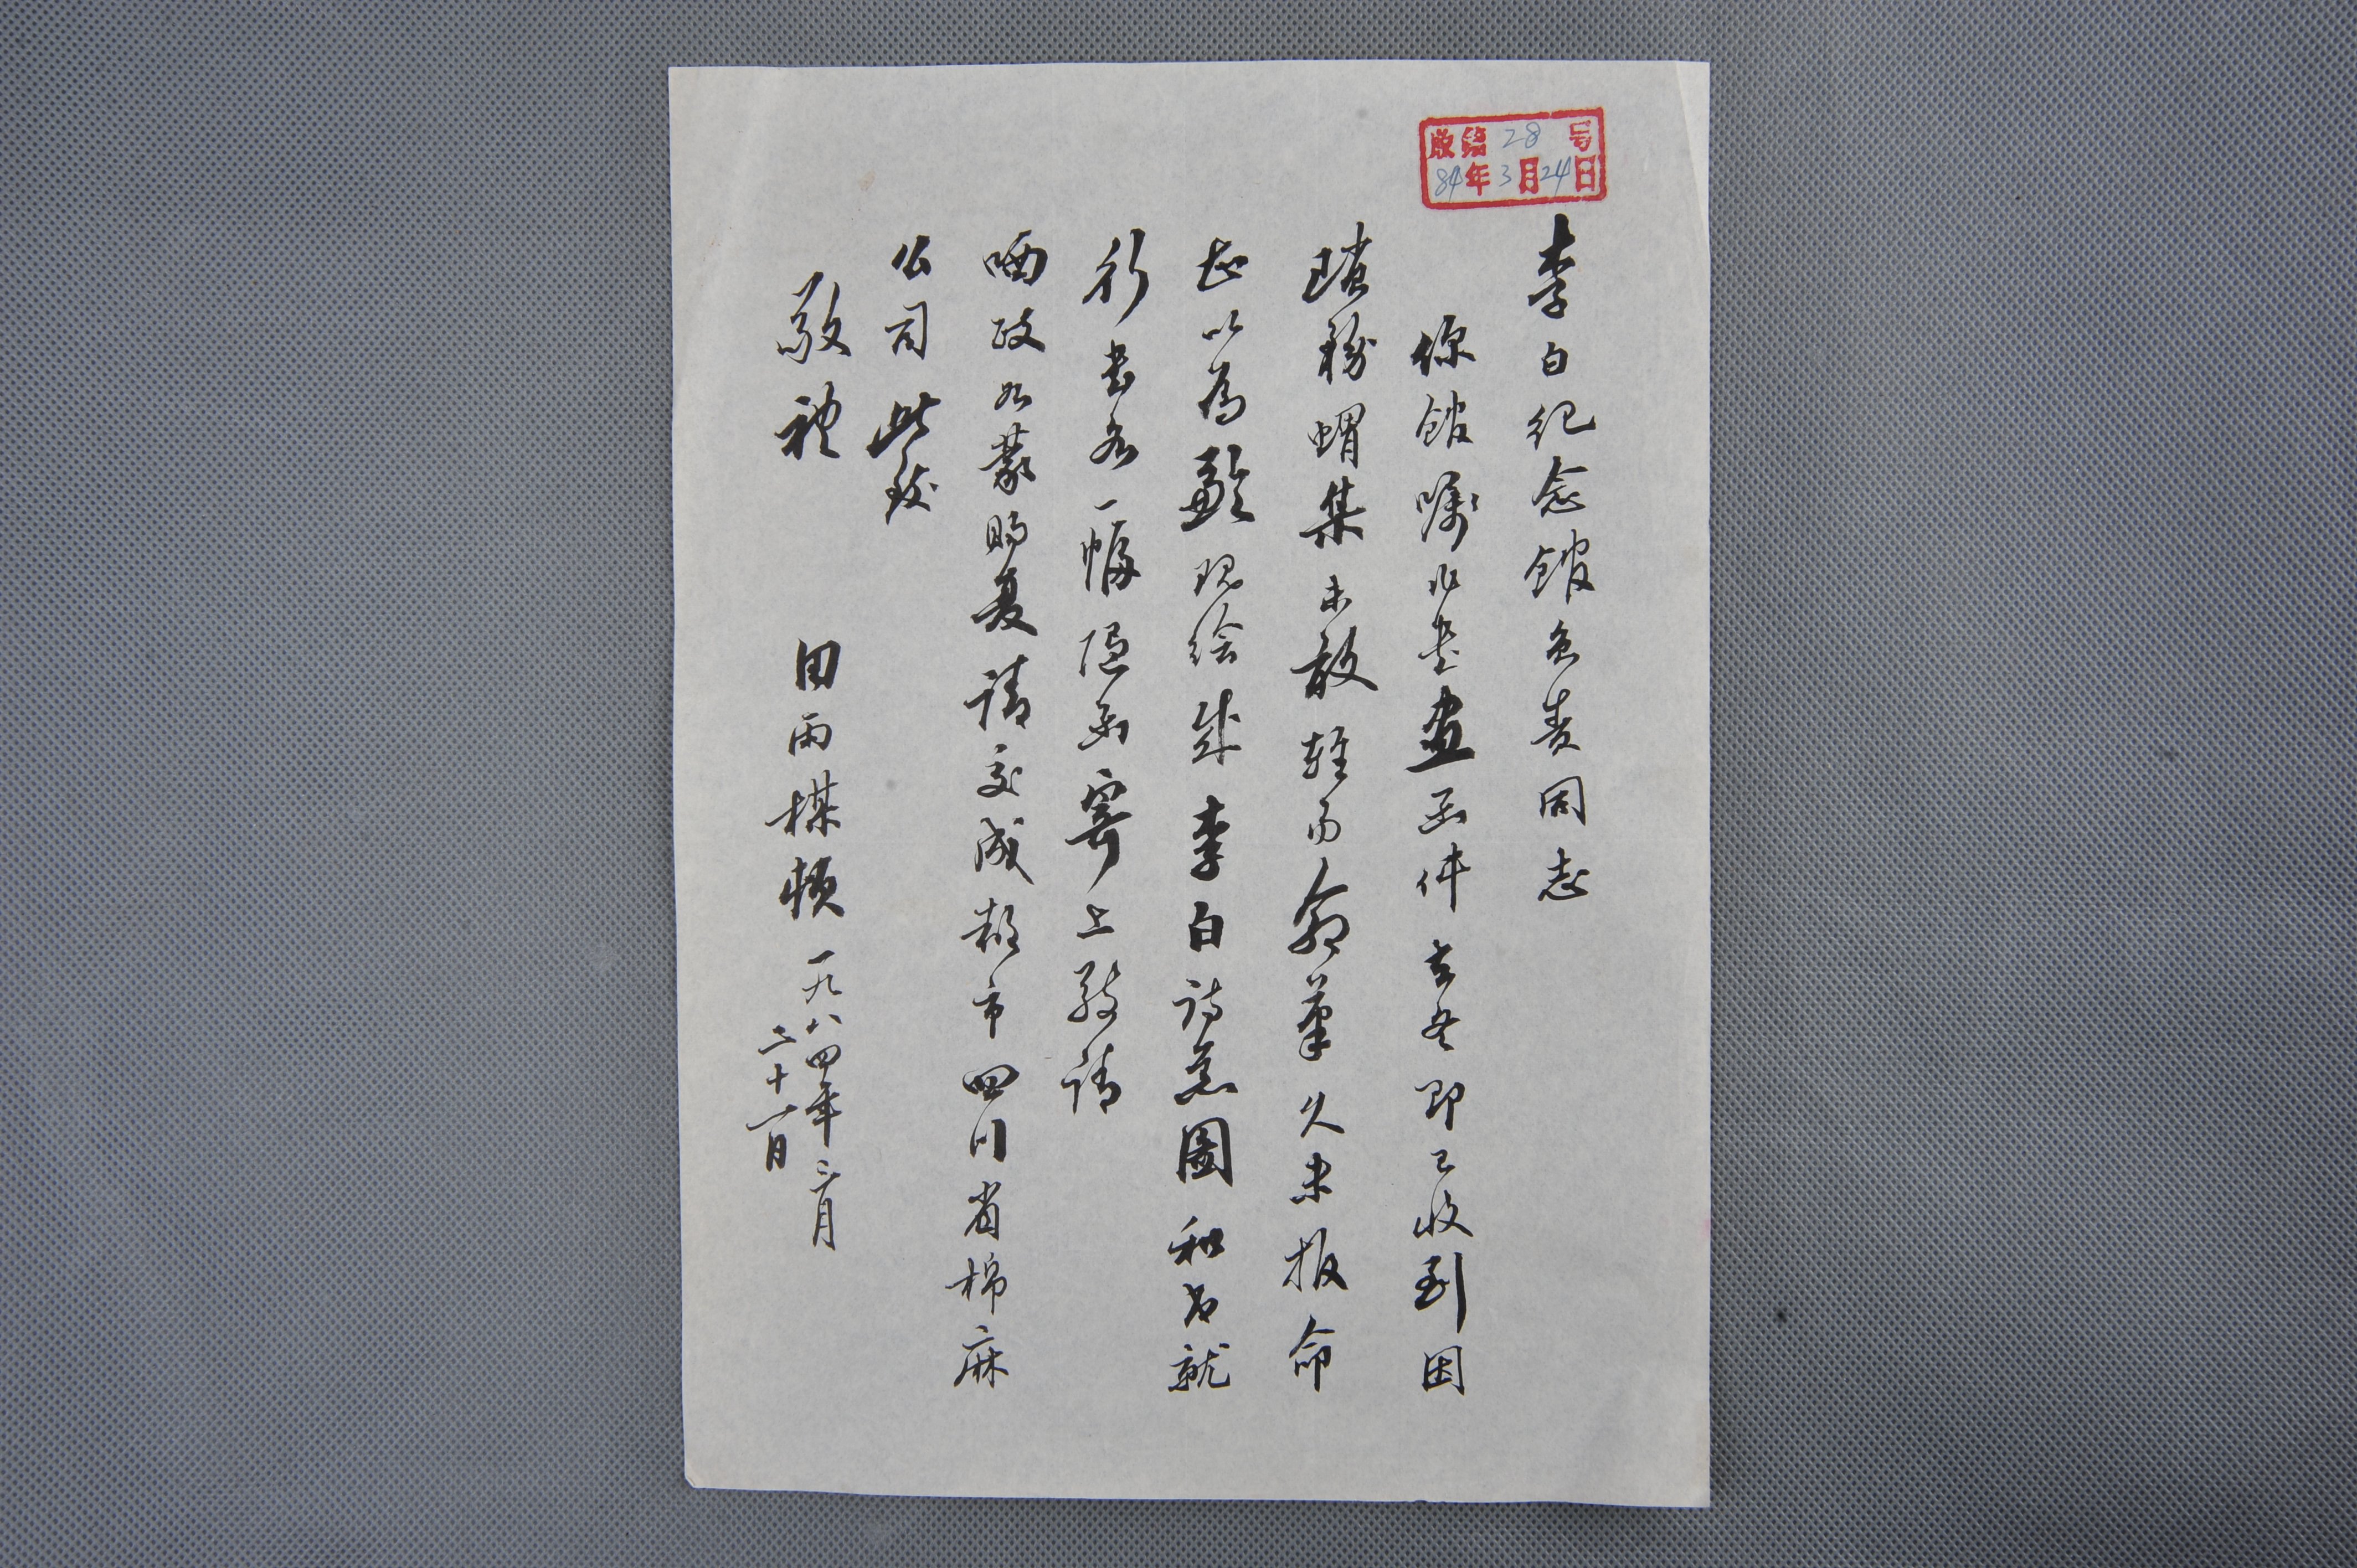 收编28号
84年3月24日
李白纪念馆负责同志
你馆嘱作书画函件去冬即已收到因
琐务蝟集未敢轻易命笔久未报命
甚以为歉现绘成李白诗意圖和书就
行书各一幅随函寄上敬请
哂政如蒙赐复请交成都市四川省棉麻
公司此致
敬礼
田雨楳顿一九八四年三月
二十一日